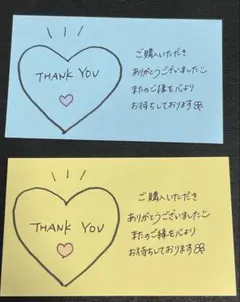 THANK YOU
ご購入いただき
ありがとうございました
またのご縁を心より
お待ちしております
THANK YOU
ご購入いただき
ありがとうございました
またのご縁を心より
お待ちしております